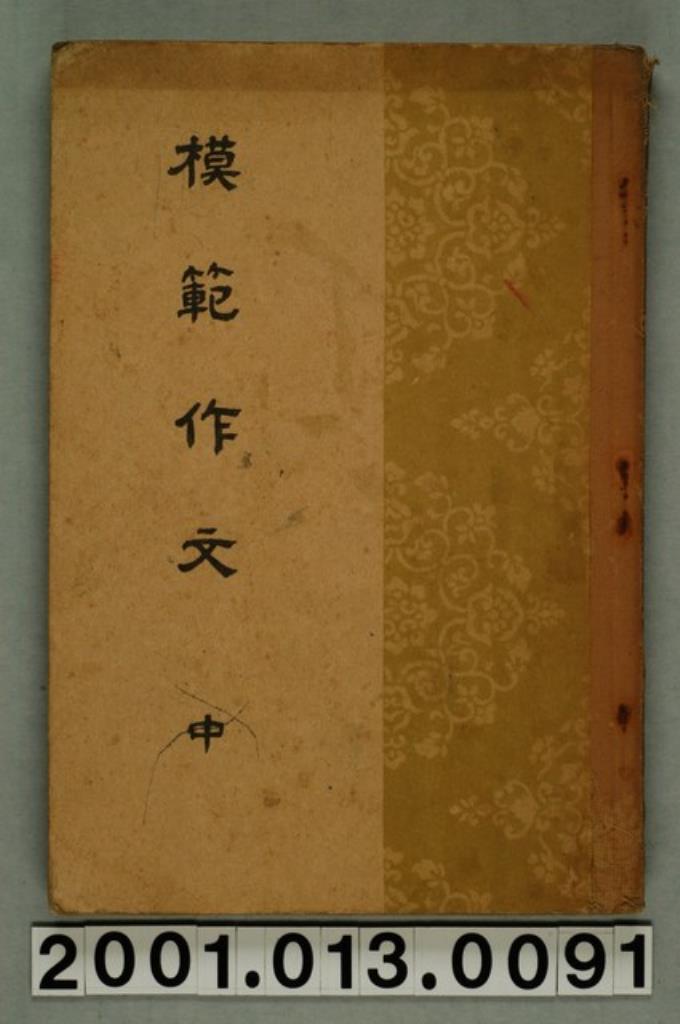 模範作文 中
2001.013.0091